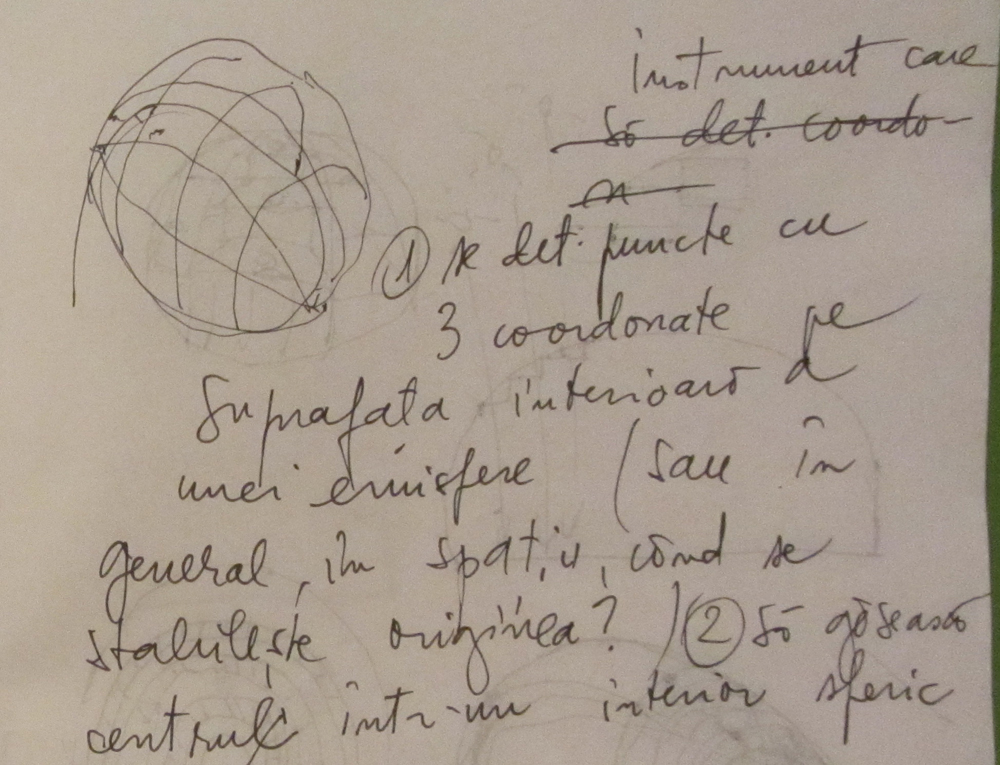 instrument care
să det. coordo-
n
① se det. puncte cu
3 coordonate pe
suprafața interioară a
unei emisfere (sau în
general, în spațiu, când se
stabilește originea?) ② să găsească
centrul într-un interior sferic